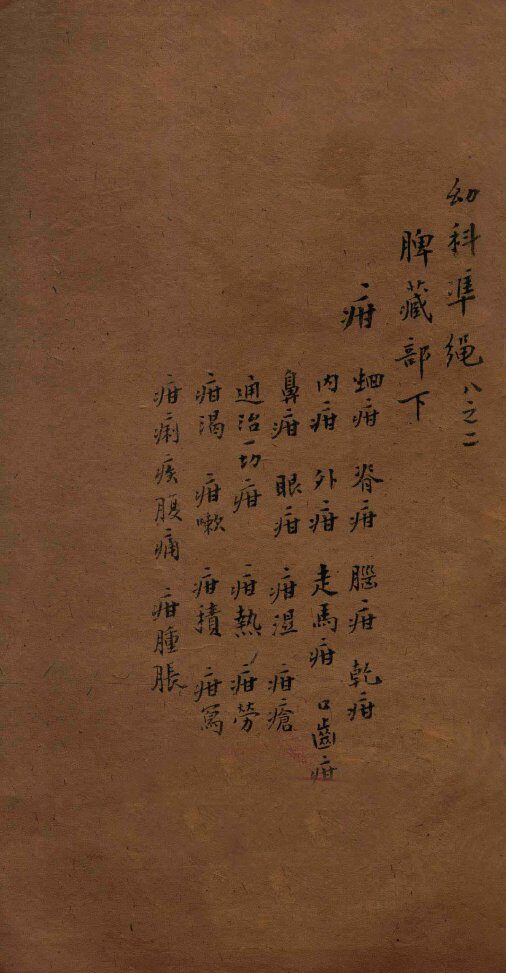 幼科準繩 八之二
脾藏部下
疳
蛔疳 脊疳 腦疳 乾疳
内疳 外疳 走馬疳 口齒疳
鼻疳 眼疳 疳濕 疳瘡
通治一切疳 疳熱 疳勞
疳渴 疳嗽 疳積 疳瀉
疳痢 疾腹痛 疳腫脹